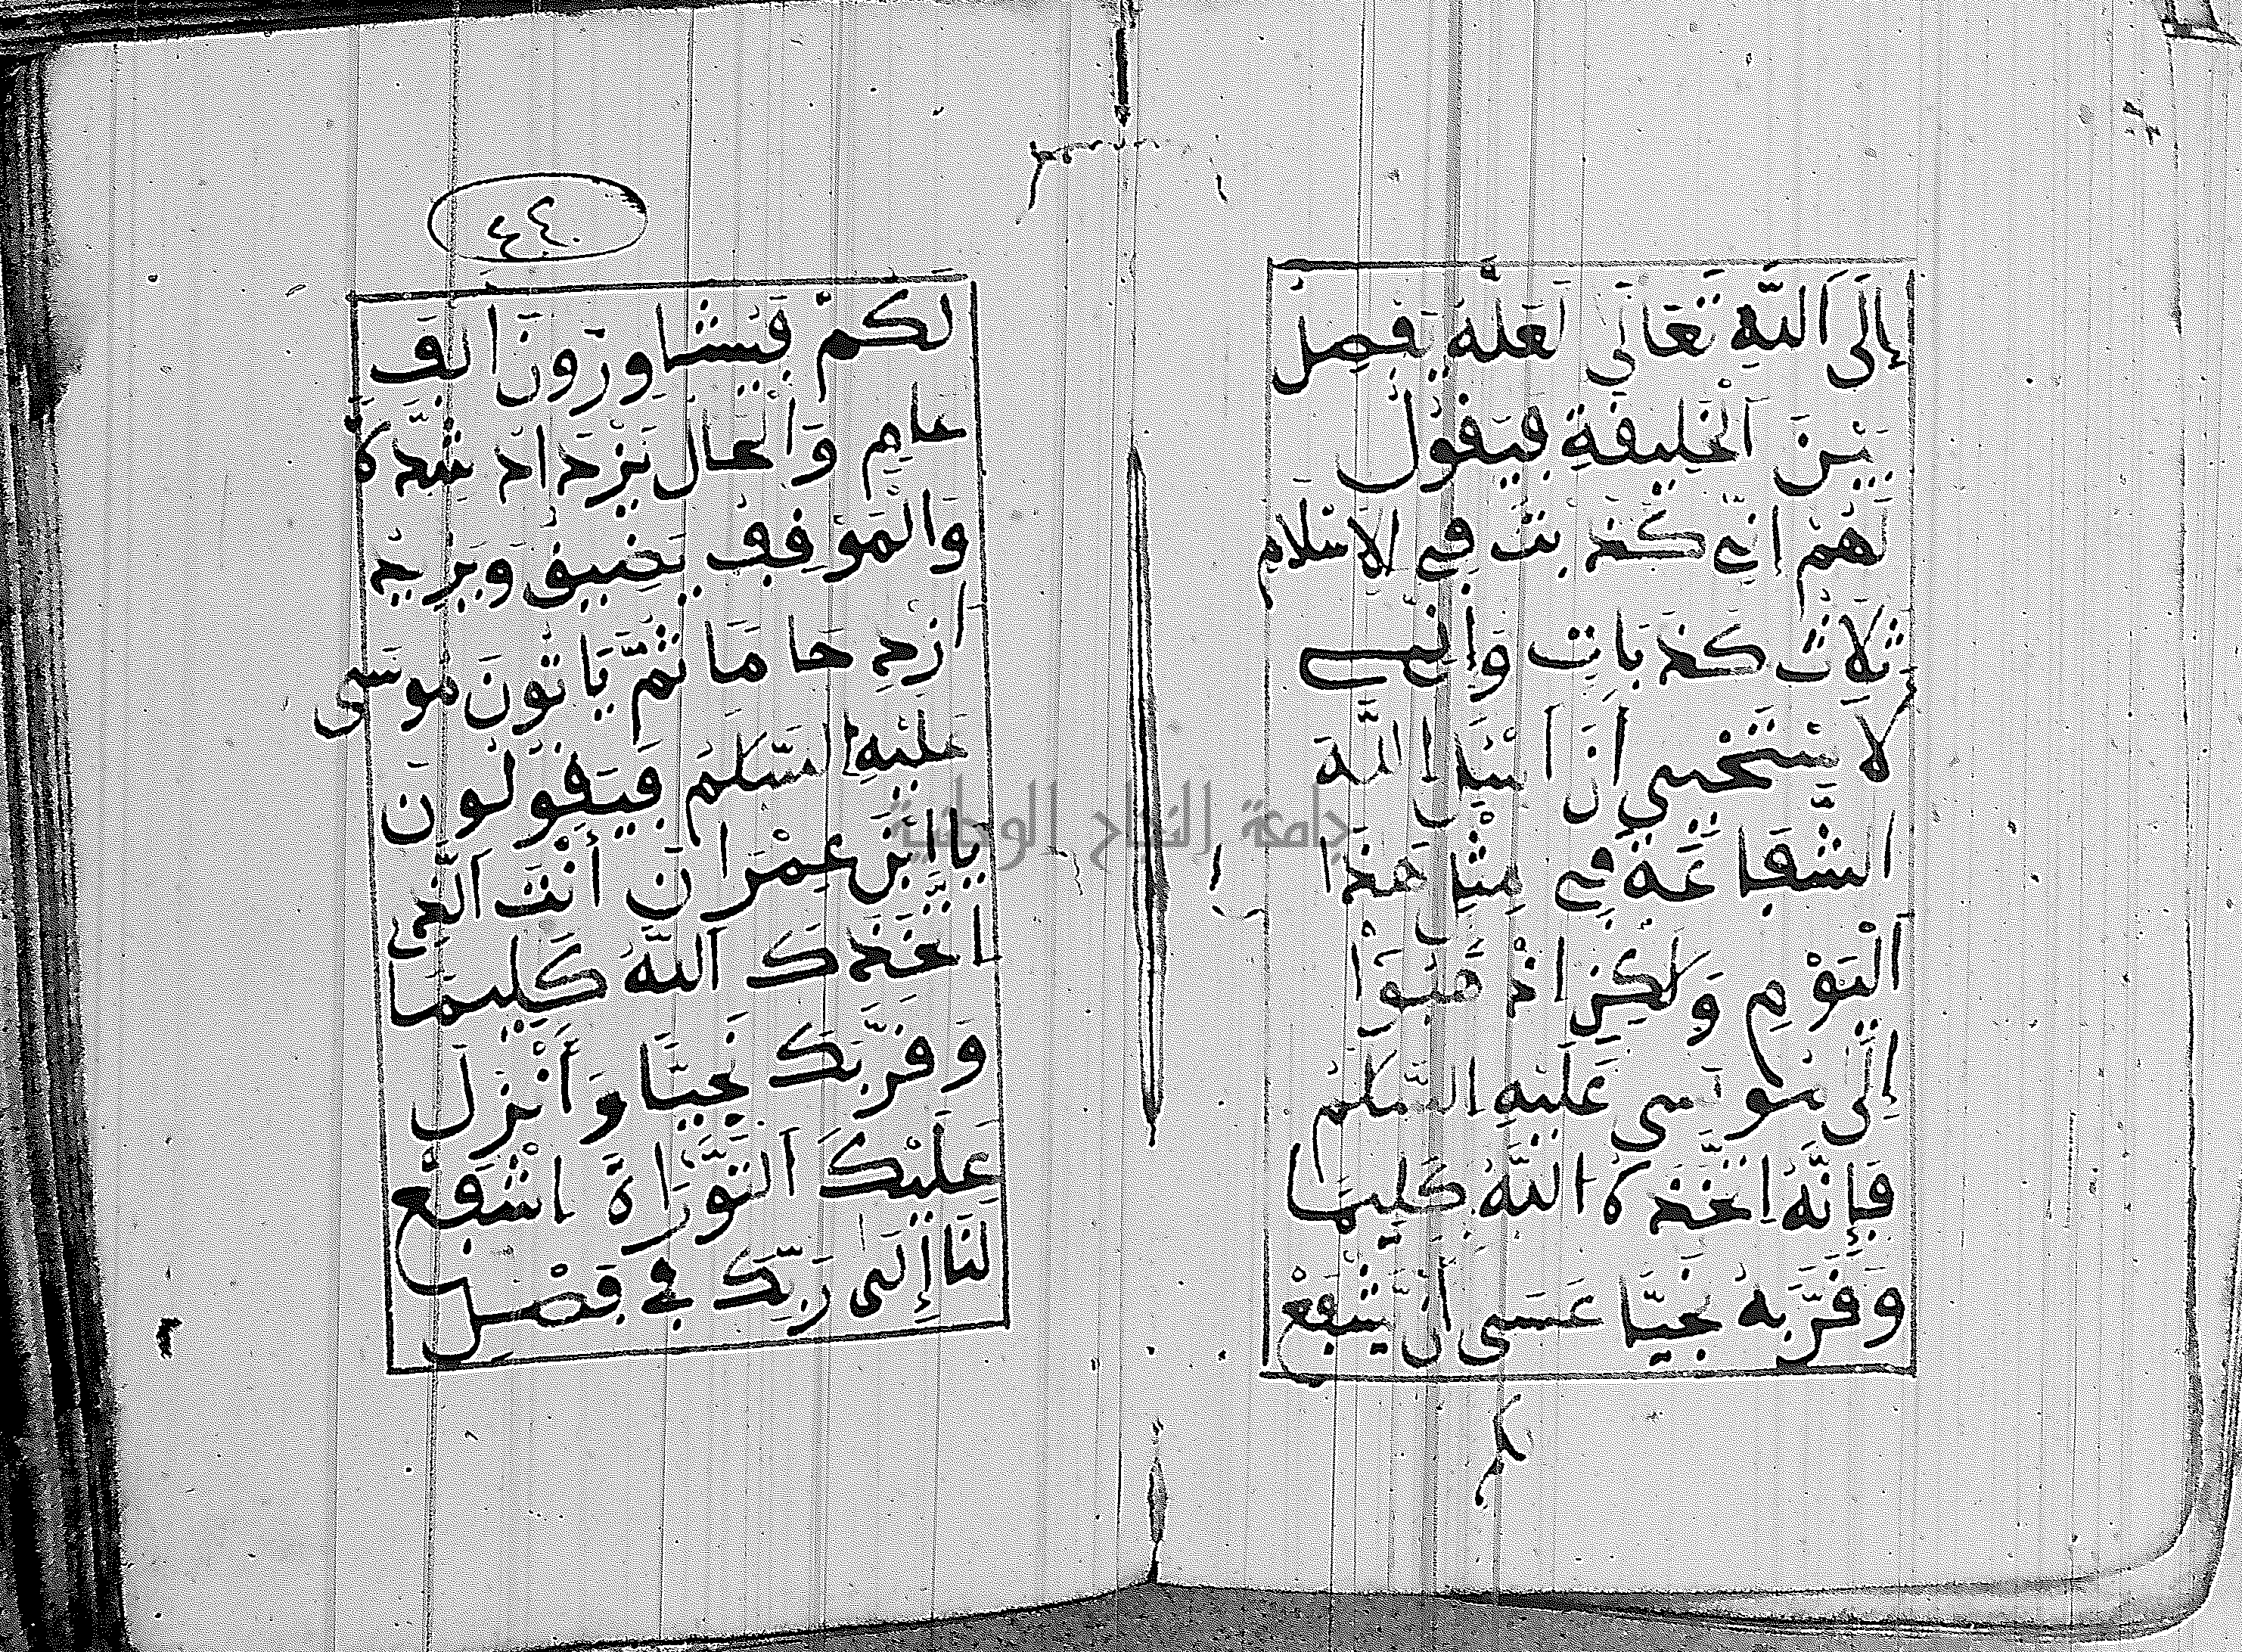 إِلَى اَللَّهِ تَعَالَى لَعَلَّهُ يَفْصِلُ
بَيْنَ اَلْخَلِيقَةِ فَيَقُولُ
لَهُمْ إِنِّي كَذَبْتُ فِي الْإِسْلَامِ
ثَلَاثَ كَذَبَاتٍ وَإِنِّي
لَأَسْتَحْيِي أَنْ أَسْئَلَ اللَّهَ
الشَّفَاعَةَ فِي مِثْلِ هَذَا
اَلْيَوْمِ وَلَكِنِ اذْهَبُوا
إِلَى مُوسَى عَلَيْهِ السَّلَمُ
فَإِنَّهُ اِتَّخَذَهُ اللَّهُ كَلِيمًا
وَقَرَّبَهُ نَجِيًّا عَسَى أَنْ يَّشْفَعَ
٤٤
لَكُمْ فَيَتَشَاوَرُونَ أَلْفَ
عَامٍ وَاَلْحَالُ يَزْدَادُ شِدَّةً
وَالْمَوْقِفُ يَضِيقُ وَيَزِيدُ
ازْدِحَامًا ثُمَّ يَاتُونَ مُوسَى
عَلَيْهِ السَّلَمُ فَيَقُولُونَ
يَا ابْنَ عِمْرَانَ أَنْتَ اَلَّذِي
اتَّخَذَكَ اَللَّهُ كَلِيمًا
وَقَرَّبَكَ نَجِيًّا وَأَنْزَلَ
عَلَيْكَ اَلتَّوْرَاةَ اشْفَعْ
لَنَا إِلَى رَبِّكَ فِي فَصْلِ
جامعة النجاح الوطنية